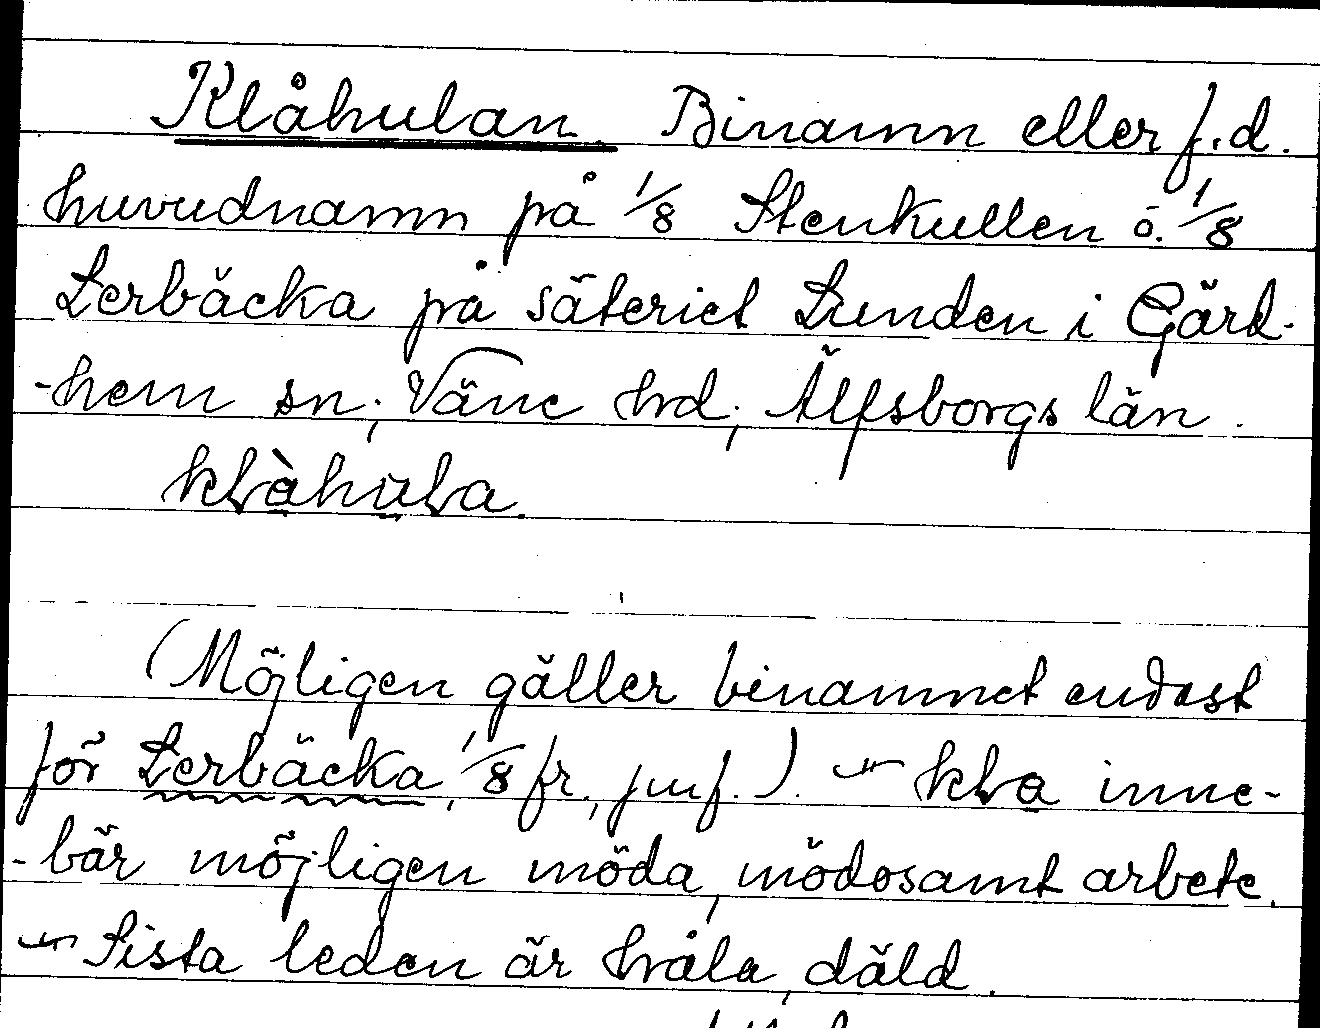 Klåhulan. Binamn eller f.d.
huvudnamn på 1/8 Stenkullen o. 1/8
Lerbäcka på säteriet Lunden i Gärd-
-hem sn; Väne hrd; Älfsborgs län.
klàhula.
(Möjligen gäller binamnet endast
för Lerbäcka, 1/8 fr., jmf.). — kla inne-
-bär möjligen möda, mödosamt arbete.
— Sista leden är håla, däld.